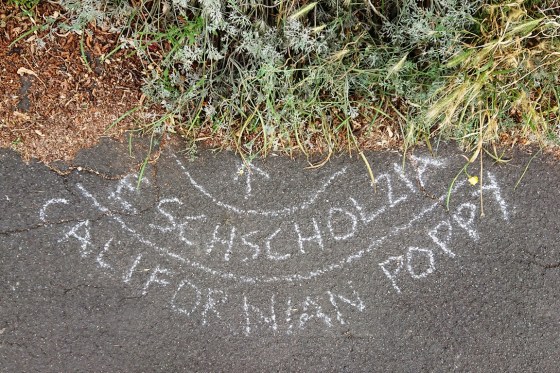 ESCHSCHOLZIA
CALIFORNIAN POPPA